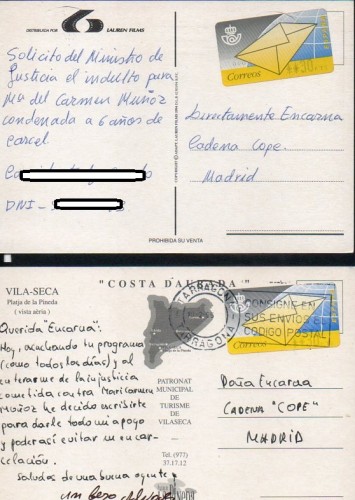 DISTRIBUIDA POR
LAUREN FILMS
Solicito del Ministro de
Justicia el indulto para
Mª del Carmen Muñoz
condenada a 6 años de
carcel
DNI-
Correos
Directamente Encarna
Cadena Cope.
Madrid
PROHIBIDA SU VENTA
VILA-SECA
Platja de la Pineda
( vista aèria )
"COSTA DAURADA"
TARRAGONA
CONSIGNE EN
SUS ENVIOS EL
CODIGO POSTAL
Correos
Querida "Encarna":
Hoy, escuchando tu programa
(como todos los dias) y al
enterarme de la injusticia
cometida contra Mari Carmen
Muñoz he decido escribirte
para darle todo mi apoyo
y poder asi evitar su encar-
celación.
Saludos de una buena oyente
un beso
PATRONAT
MUNICIPAL
DE
TURISME
DE
VILASECA
Tel. (977)
37.17.12
Doña Encarna
CADENA "COPE"
MADRID